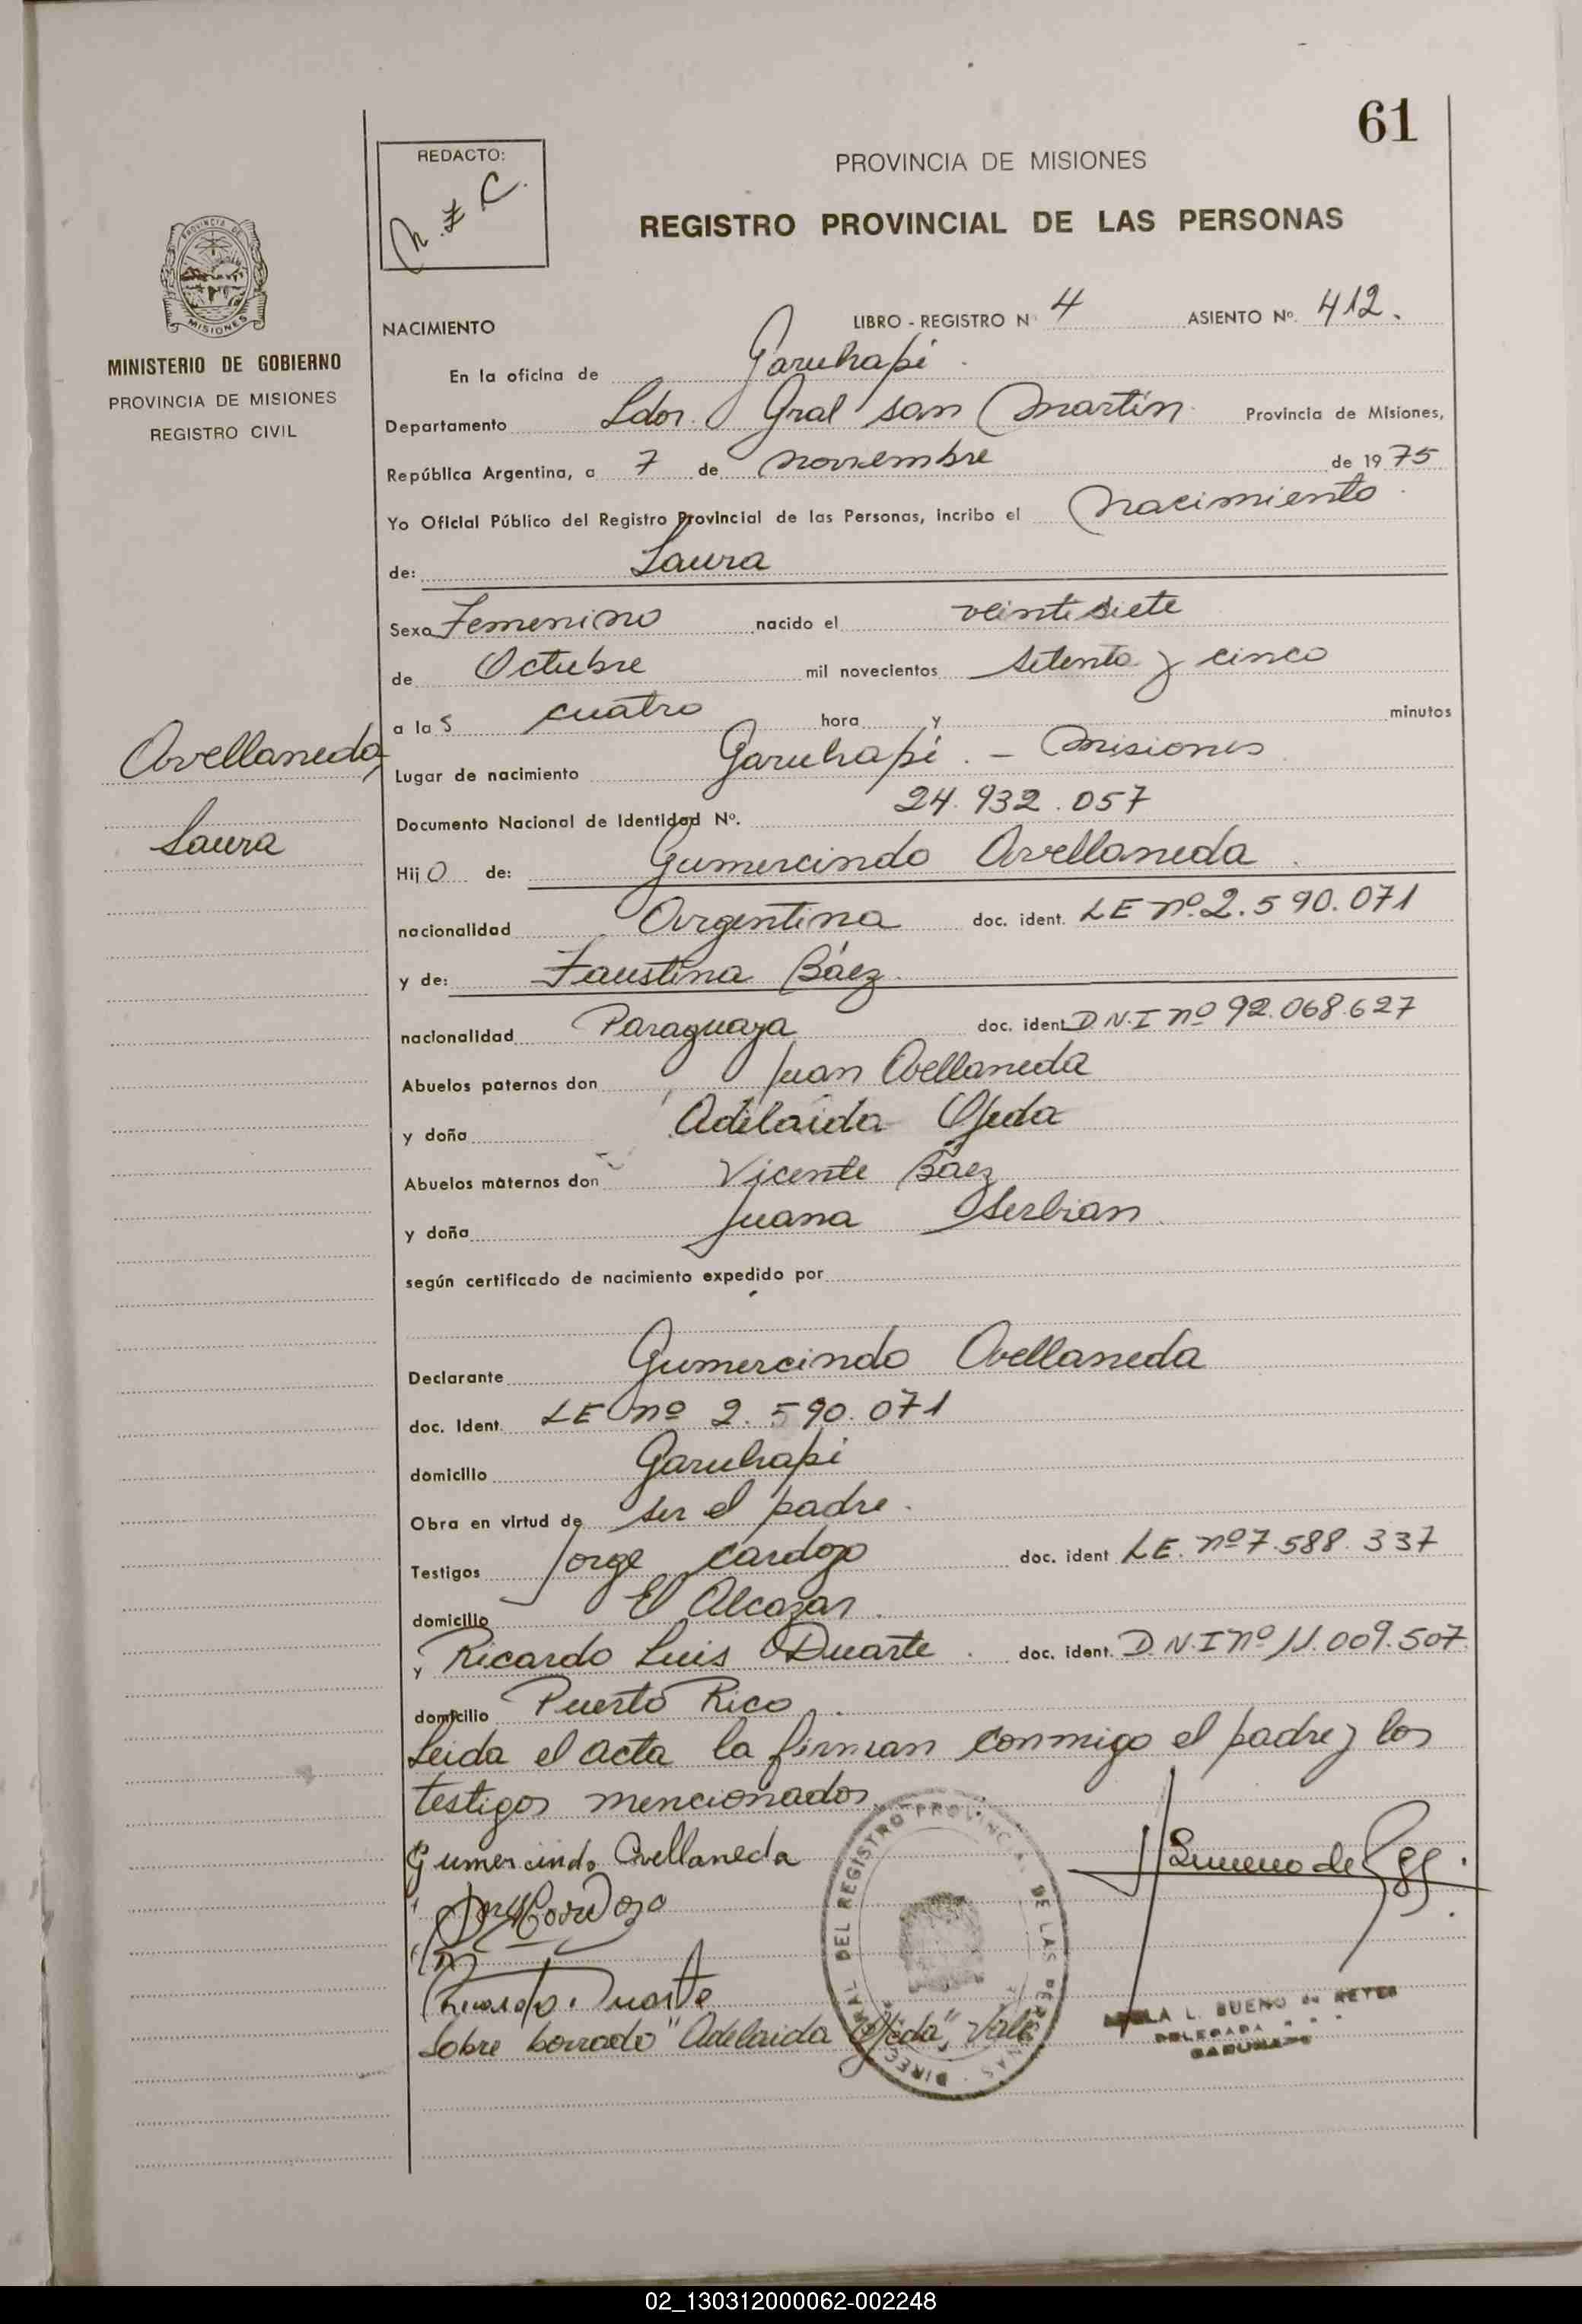 61
REDACTO:
PROVINCIA DE MISIONES
REGISTRO PROVINCIAL DE LAS PERSONAS
PROVINCIA DE
MISIONES
MINISTERIO DE GOBIERNO
PROVINCIA DE MISIONES
REGISTRO CIVIL
NACIMIENTO LIBRO - REGISTRO N° 4 ASIENTO Nº. 412.
En la oficina de Garuhapi.
Departamento Ldor. Gral San Martín Provincia de Misiones,
República Argentina, a 7 de noviembre de 1975
Yo Oficial Público del Registro Provincial de las Personas, incribo el nacimiento.
de: Laura
Sexo Femenino nacido el veintisiete
de Octubre mil novecientos setenta y cinco
a las cuatro hora y minutos
Avellaneda,
Laura
Lugar de nacimiento Garuhapi. - Misiones
Documento Nacional de Identidad Nº. 24.932.057
Hijo de: Gumercindo Avellaneda.
nacionalidad Argentina doc. ident. LE nº 2.590.071
y de: Faustina Báez.
nacionalidad Paraguaya doc. ident D.N.I nº 92.068.627
Abuelos paternos don Juan Avellaneda
y doña Adelaida Ojeda
Abuelos maternos don Vicente Báez
y doña Juana Serbian
según certificado de nacimiento expedido por
Declarante Gumercindo Avellaneda
doc. Ident. LE nº 2.590.071
domicilio Garuhapi
Obra en virtud de ser el padre.
Testigos Jorge Cardozo doc. ident LE. nº 7.588.337
domicilio El Alcazar.
y Ricardo Luis Duarte. doc. ident. D.N.I nº 11.009.507
domicilio Puerto Rico.
Leida el acta la firman conmigo el padre y los
testigos mencionados.
Gumercindo Avellaneda
Ricardo Duarte
Sobre borrado "Adelaida Ojeda", Vale
DEL REGISTRO PROVINCIAL DE LAS PERSONAS
L. BUENO de REYES
DELEGADA
GARUHAPI
02_130312000062-002248